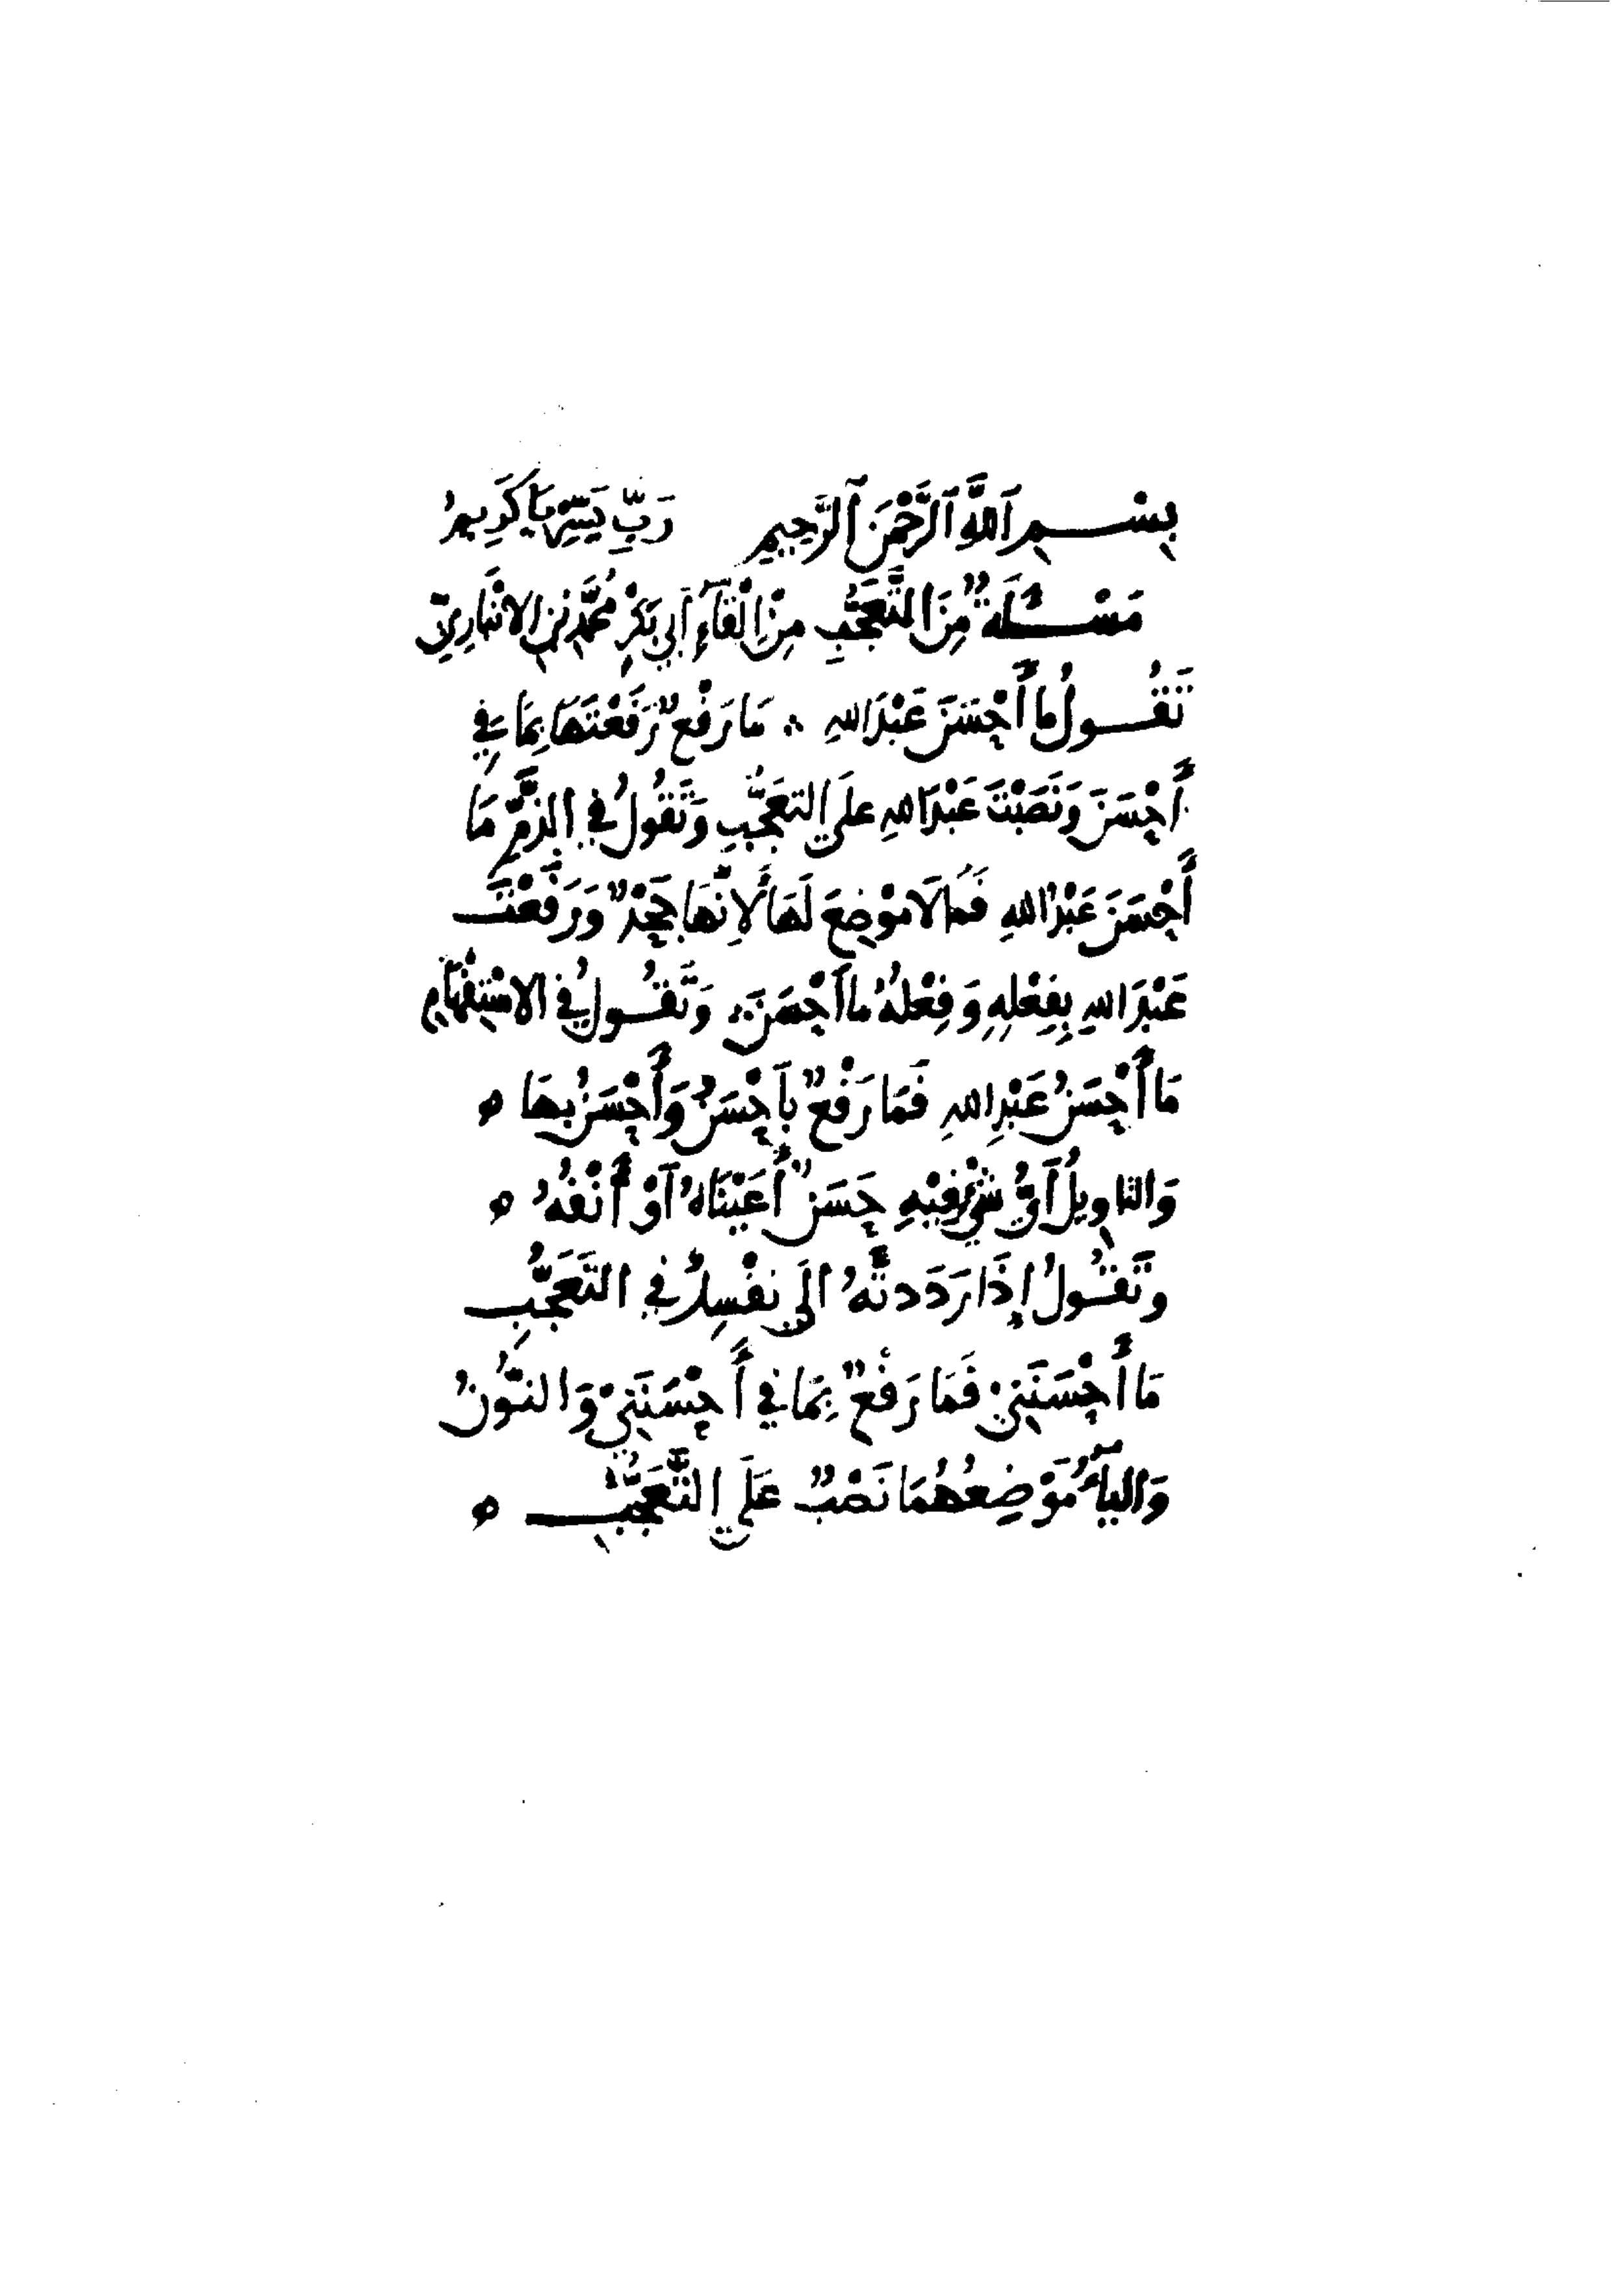 بِسْمِ اَللَّهِ اَلرَّحْمَنِ اَلرَّحِيمِ رَبِّ يَسِّرْ يَا كَرِيمُ
مَسْئَلَةٌ مِنَ التَّعَجُّبِ مِنْ اِلْقَآءِ أَبِي بَكْرٍ مُحَمَّدِ بْنِ الانْبَارِيّ
تَقُولُ مَا أَحْسَنَ عَبْدَ اللهِ ∴ مَا رَفْعٌ رَفَعْتَهَا بِمَا فِي
أَحْسَنَ وَنَصَبْتَ عَبْدَ اللهِ عَلَى التَعَجُّبِ وَتَقُولُ فِي الذَّمِّ مَا
أَحْسَنَ عَبْدُ اللهِ فَمَا لَا مَوْضِعَ لَهَا لأَنَّهَا جَحْدٌ وَرَفَعْتَ
عَبْدَ اللهِ بِفِعْلِهِ وَفِعْلُهُ مَا أَحْسَنَ ∴ وَتَقُولُ فِي الاسْتِفْهَامِ
مَا أَحْسَنُ عَبْدِ اللهِ فَمَا رَفْعٌ بِأَحْسَنُ وَأَحْسَنُ بِهَا ه
وَالتاوِيلُ أَيُّ شَيْءٍ فِيْهِ حَسَنٌ أَعَيْنَاهُ أَوْ أَنْفُهُ ه
وَتَقُولُ إِذَا رَدَدتَّهُ الَى نَفْسِكَ فِي التَّعَجُّبِ
مَا أَحْسَنَنِي فَمَا رَفْعٌ بِمَا فِي أَحْسَنَنِي وَالنُّونُ
وَاليَآءُ مَوْضِعُهُمَا نَصْبٌ عَلَى التَّعَجُّبِ ه